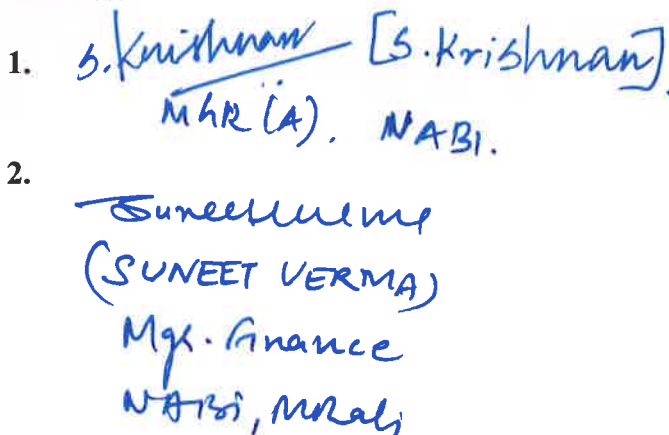 1. S. Krishnan [S. Krishnan].
MGR (A). NABI.
2.
Suneet Verma
(SUNEET VERMA)
Mgr. Finance
NABI, Mohali